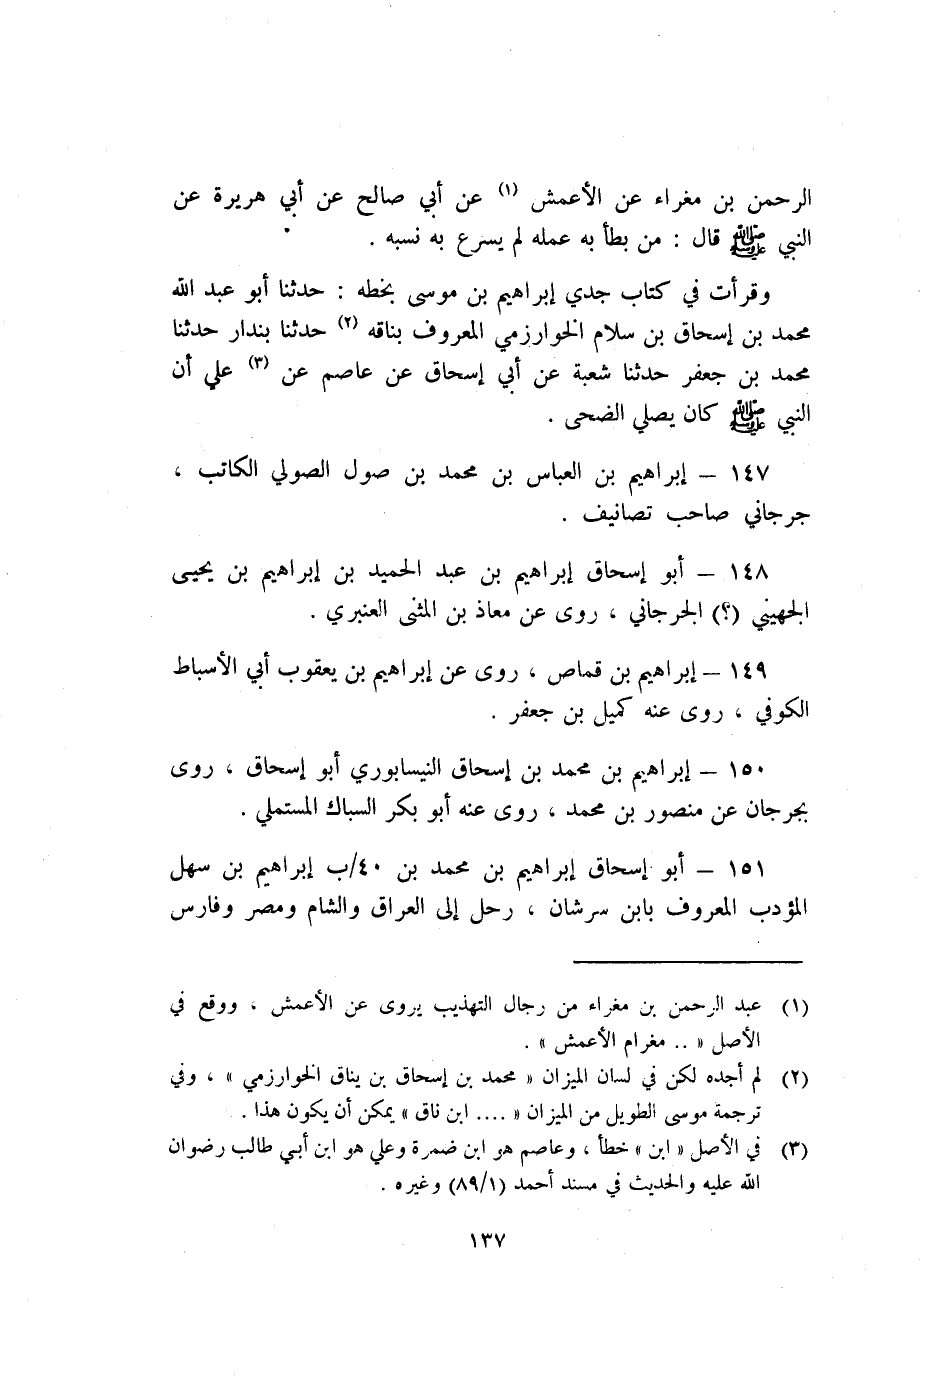 الرحمن بن مغراء عن الأعمش (١) عن أبي صالح عن أبي هريرة عن
النبي ﷺ قال : من بطأ به عمله لم يسرع به نسبه .
وقرأت في كتاب جدي إبراهيم بن موسى بخطه : حدثنا أبو عبد الله
محمد بن إسحاق بن سلام الخوارزمي المعروف بناقه (٢) حدثنا بندار حدثنا
محمد بن جعفر حدثنا شعبة عن أبي إسحاق عن عاصم عن (٣) علي أن
النبي ﷺ كان يصلي الضحى .
١٤٧ – إبراهيم بن العباس بن محمد بن صول الصولي الكاتب ،
جرجاني صاحب تصانيف .
١٤٨ – أبو إسحاق إبراهيم بن عبد الحميد بن إبراهيم بن يحيى
الجهيني (؟) الجرجاني ، روى عن معاذ بن المثنى العنبري .
١٤٩ – إبراهيم بن قماص ، روى عن إبراهيم بن يعقوب أبي الأسباط
الكوفي ، روى عنه كميل بن جعفر .
١٥٠ – إبراهيم بن محمد بن إسحاق النيسابوري أبو إسحاق ، روى
بجرجان عن منصور بن محمد ، روى عنه أبو بكر السباك المستملي .
١٥١ – أبو إسحاق إبراهيم بن محمد بن ٤٠/ب إبراهيم بن سهل
المؤدب المعروف بابن سرشان ، رحل إلى العراق والشام ومصر وفارس
(١) عبد الرحمن بن مغراء من رجال التهذيب يروى عن الأعمش ، ووقع في
الأصل « .. مغرام الأعمش » .
(٢) لم أجده لكن في لسان الميزان « محمد بن إسحاق بن يناق الخوارزمي » ، وفي
ترجمة موسى الطويل من الميزان « .... ابن ناق » يمكن أن يكون هذا .
(٣) في الأصل « ابن » خطأ ، وعاصم هو ابن ضمرة وعلي هو ابن أبي طالب رضوان
الله عليه والحديث في مسند أحمد (٨٩/١) وغيره .
١٣٧